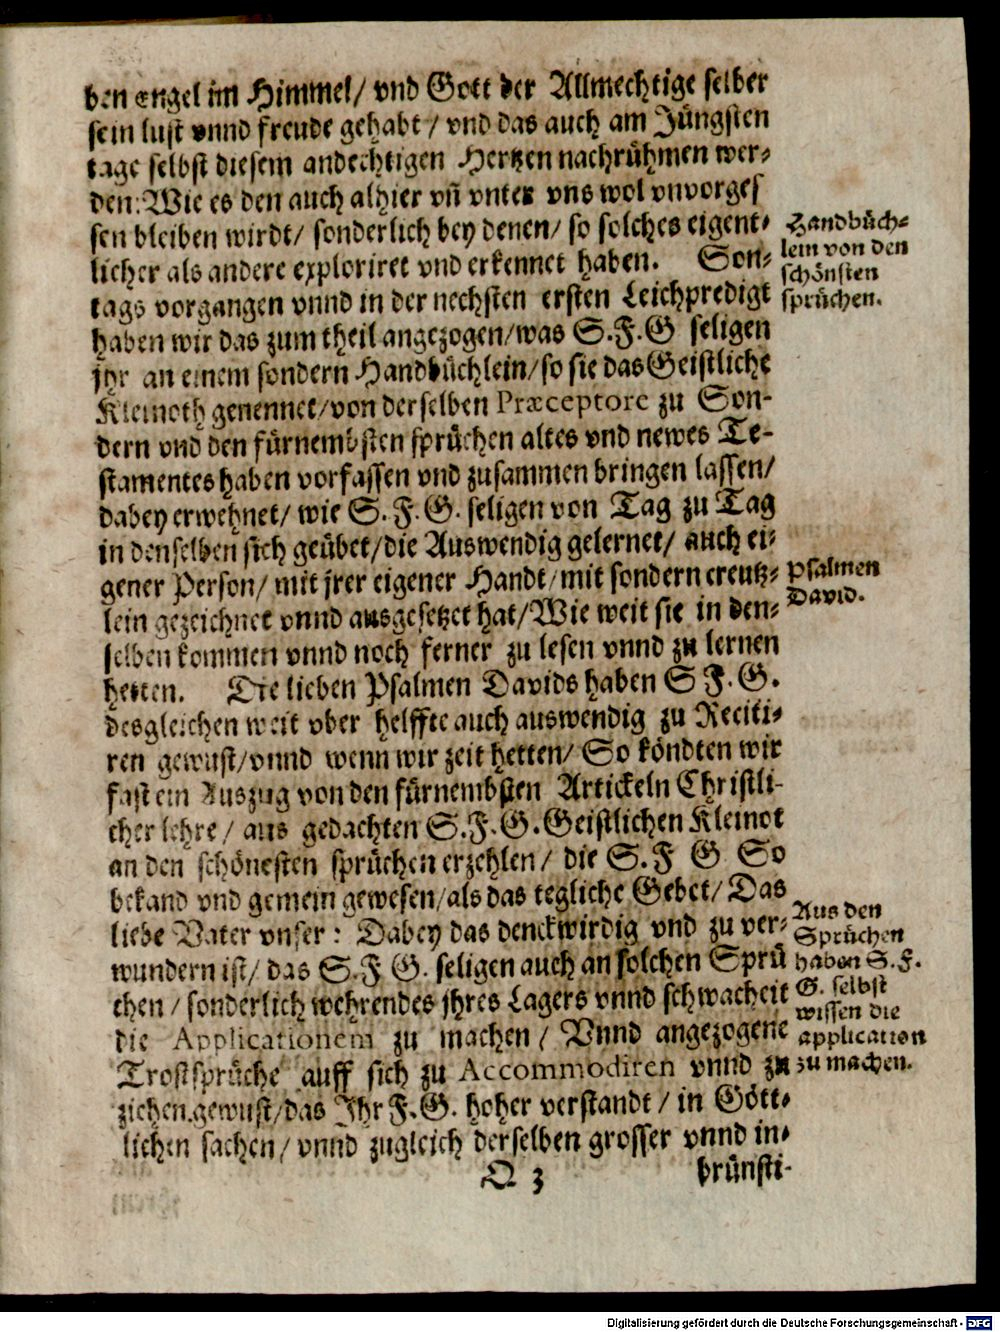 ben engel im Himmel/ vnd Gott der Allmechtige selber
sein lust vnnd freude gehabt/ vnd das auch am Jüngsten
tage selbst diesem andechtigen Hertzen nachrühmen wer-
den: Wie es den auch alhier vñ vnter vns wol vnvorges
sen bleiben wirdt/ sonderlich bey denen/ so solches eigent-
licher als andere exploriret vnd erkennet haben. Son-
tags vorgangen vnnd in der nechsten ersten Leichpredigt
haben wir das zum theil angezogen/ was S.F.G seligen
jhr an einem sondern Handbüchlein/ so sie das Geistliche
Kleinoth genennet/ von derselben Præceptore zu Son-
dern vnd den fürnembsten sprüchen altes vnd newes Te-
stamentes haben vorfassen vnd zusammen bringen lassen/
dabey erwehnet/ wie S. F. G. seligen von Tag zu Tag
in denselben sich geübet/ die Auswendig gelernet/ auch ei-
gener Person/ mit jrer eigener Handt/ mit sondern creutz-
lein gezeichnet vnnd ausgesetzet hat/ Wie weit sie in den-
selben kommen vnnd noch ferner zu lesen vnnd zu lernen
hetten. Die lieben Psalmen Davids haben S F. G.
desgleichen weit vber helffte auch auswendig zu Reciti-
ren gewust/ vnnd wenn wir zeit hetten/ So köndten wir
fast ein Auszug von den fürnembsten Artickeln Christli-
cher lehre/ aus gedachten S.F.G. Geistlichen Kleinot
an den schönesten sprüchen erzehlen/ die S.F G So
bekand vnd gemein gewesen/ als das tegliche Gebet/ Das
liebe Vater vnser: Dabey das denckwirdig vnd zu ver-
wundern ist/ das S.F G. seligen auch an solchen Sprü
chen/ sonderlich wehrendes jhres Lagers vnnd schwacheit
die Applicationem zu machen/ Vnnd angezogene
Trostsprüche auff sich zu Accommodiren vnnd zu
ziehen gewust/ das Ihr F.G. hoher verstandt/ in Gött-
lichen sachen/ vnnd zugleich derselben grosser vnnd in-
Q 3 brünsti-
Handbüch-
lein von den
schönsten
sprüchen.
Psalmen
David.
Aus den
Sprüchen
haben S. F.
G. selbst
wissen die
application
zu machen.
Digitalisierung gefördert durch die Deutsche Forschungsgemeinschaft - DFG